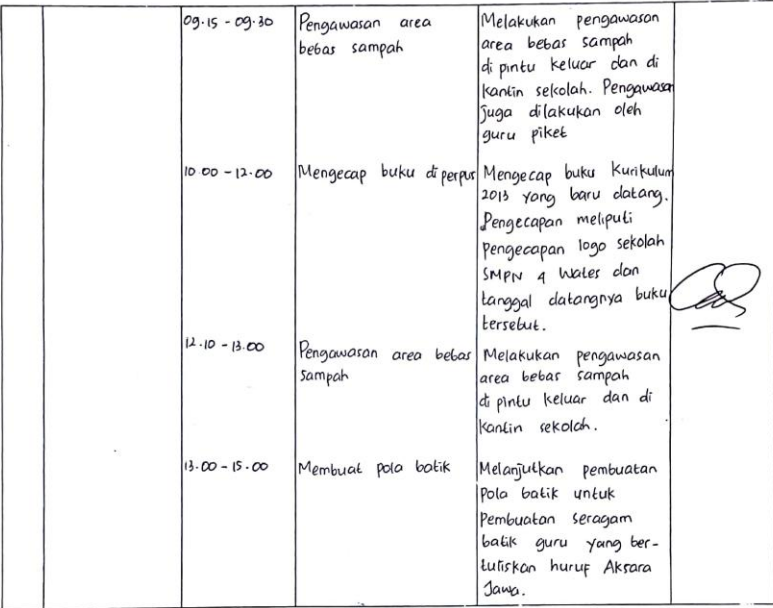 09.15 - 09.30
Pengawasan area
bebas sampah
Melakukan pengawasan
area bebas sampah
di pintu keluar dan di
kantin sekolah. Pengawasan
juga dilakukan oleh
guru piket
10.00 - 12.00
Mengecap buku di perpus
Mengecap buku Kurikulum
2013 yang baru datang.
Pengecapan meliputi
pengecapan logo sekolah
SMPN 4 Wates dan
tanggal datangnya buku
tersebut.
12.10 - 13.00
Pengawasan area bebas
sampah
Melakukan pengawasan
area bebas sampah
di pintu keluar dan di
kantin sekolah.
13.00 - 15.00
Membuat pola batik
Melanjutkan pembuatan
pola batik untuk
Pembuatan seragam
batik guru yang ber-
tuliskan huruf Aksara
Jawa.